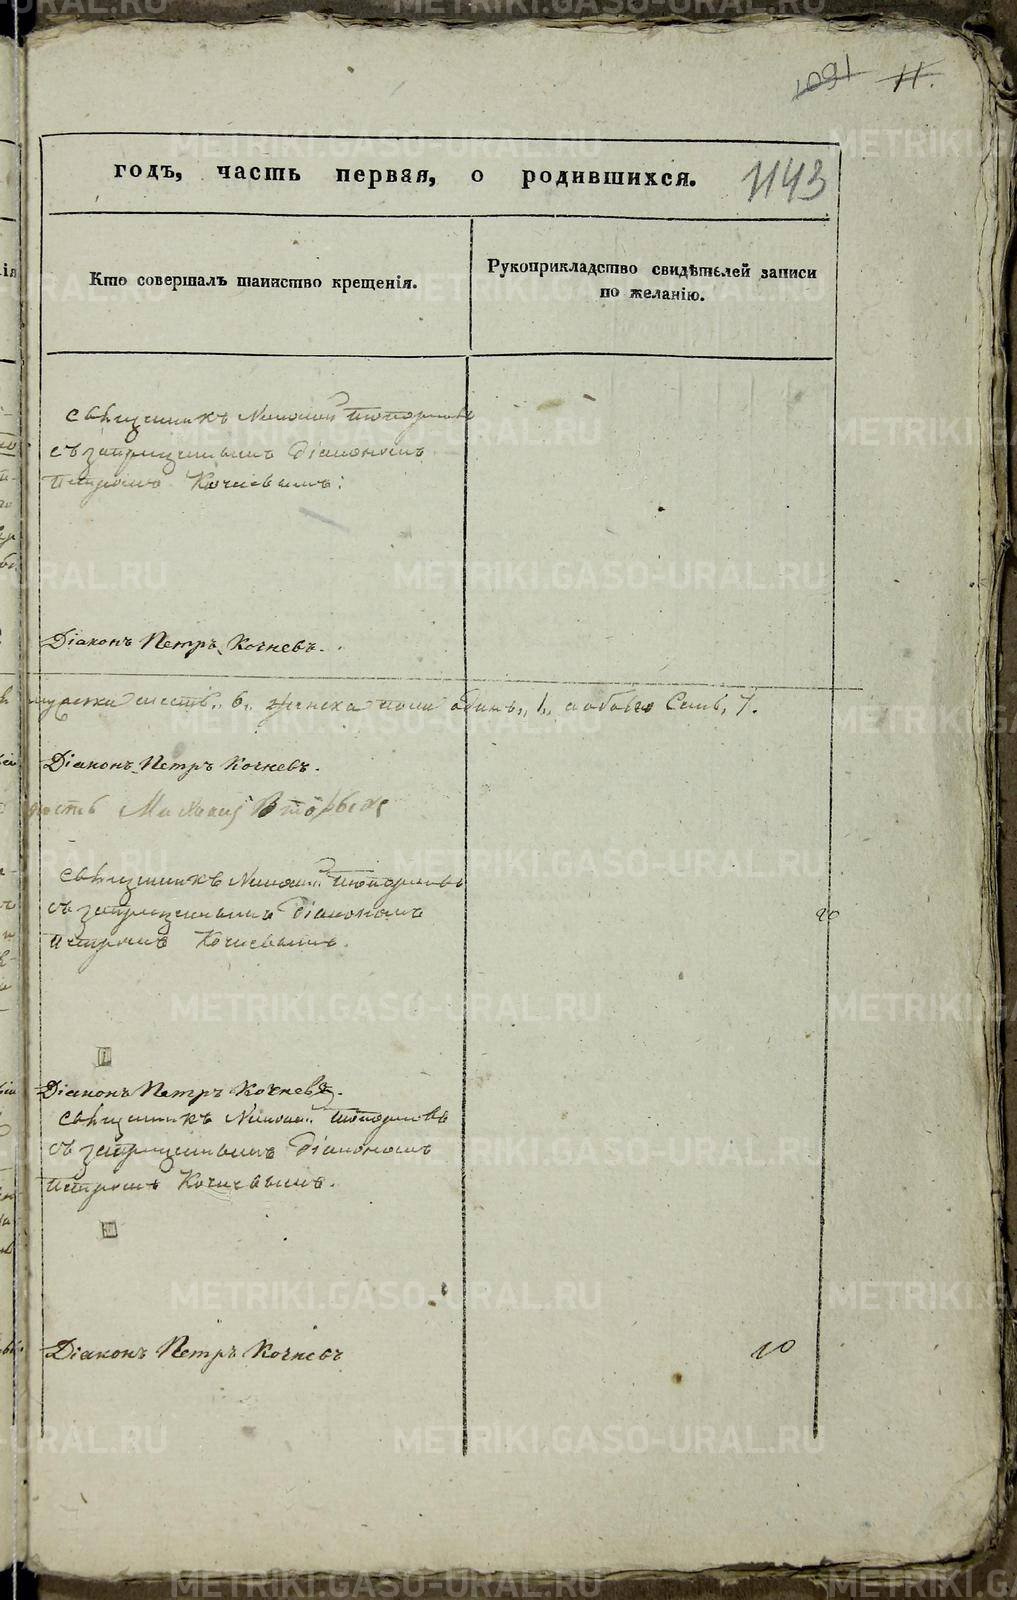 1091 11.
годъ, часть первая, о родившихся. 1143
Кто совершалъ таинство крещенія.
Рукоприкладство свидѣтелей записи
по желанію.
Священникъ Николай Топорковъ
съ запрещеннымъ Діакономъ
Петромъ Кочневымъ.
Діаконъ Петръ Кочневъ.
мужеска шесть, 6, женска пола одинъ, 1, а обоего Семь, 7.
Діаконъ Петръ Кочневъ.
Священникъ Николай Топорковъ
съ запрещеннымъ Діакономъ
Петромъ Кочневымъ.
Діаконъ Петръ Кочневъ.
Священникъ Николай Топорковъ
съ запрещеннымъ Діакономъ
Петромъ Кочневымъ.
Діаконъ Петръ Кочневъ
METRIKI.GASO-URAL.RU